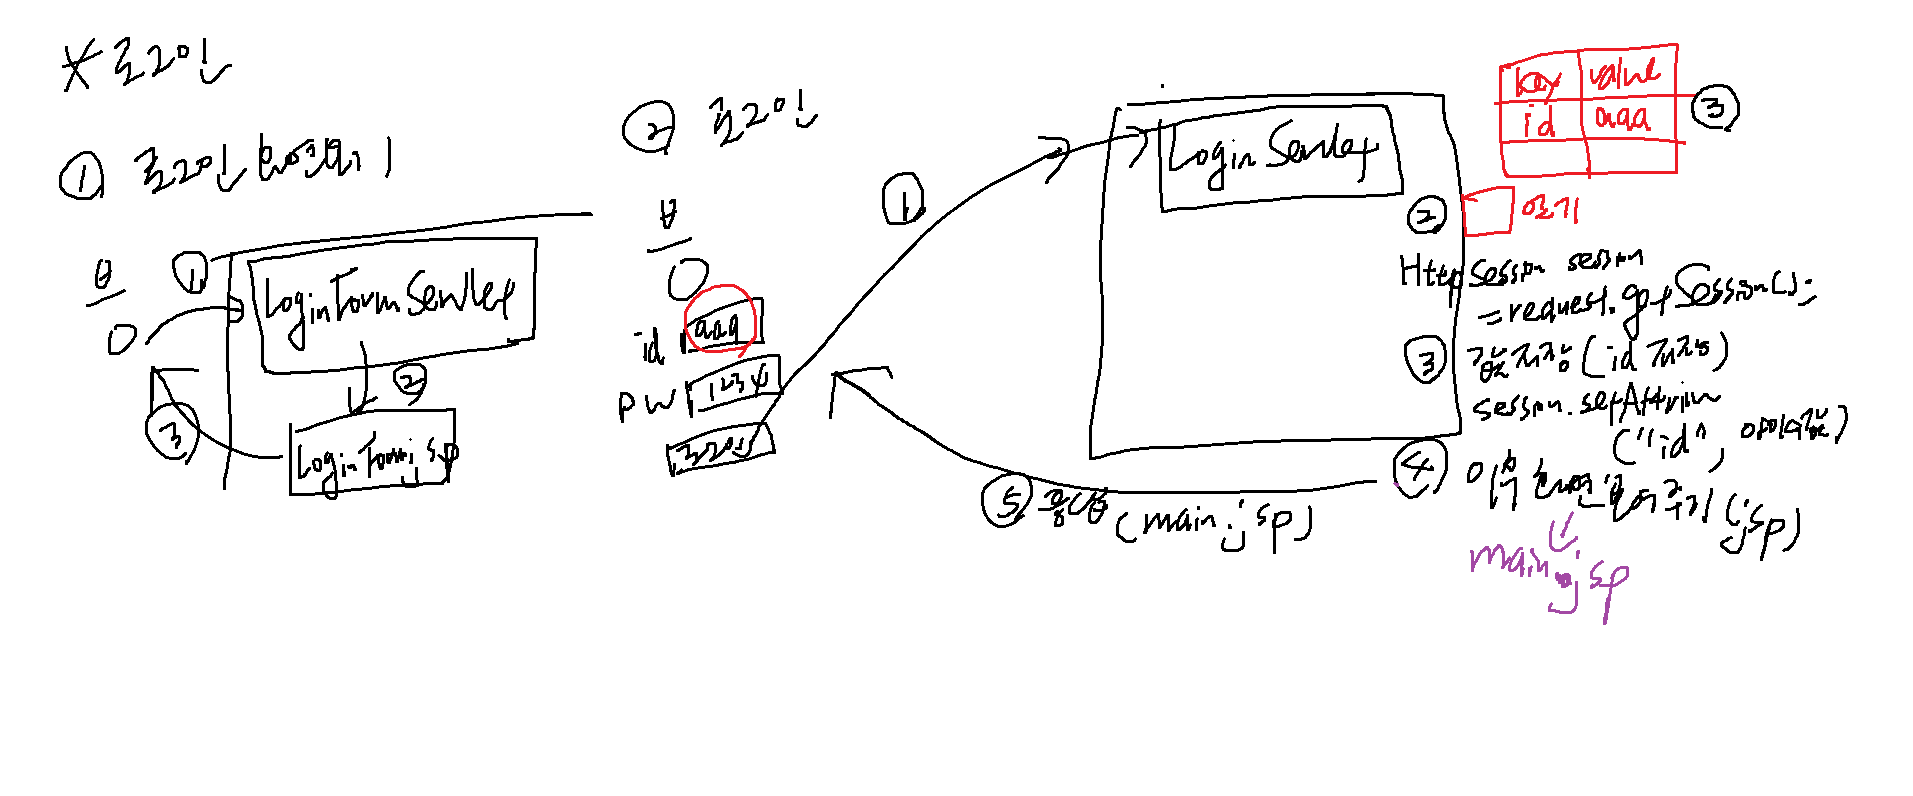 * 로그인
① 로그인 화면보기
①
LoginFormServlet
②
LoginForm.jsp
③
② 로그인
id aaa
pw 1234
로그인
①
LoginServlet
key value
id aaa
③
② 열기
HttpSession session
= request.getSession();
③ 값 저장 (id 저장)
session.setAttribu
("id", 아이디값)
④ 이후 화면 보여주기 (jsp)
main.jsp
⑤ 응답
(main.jsp)